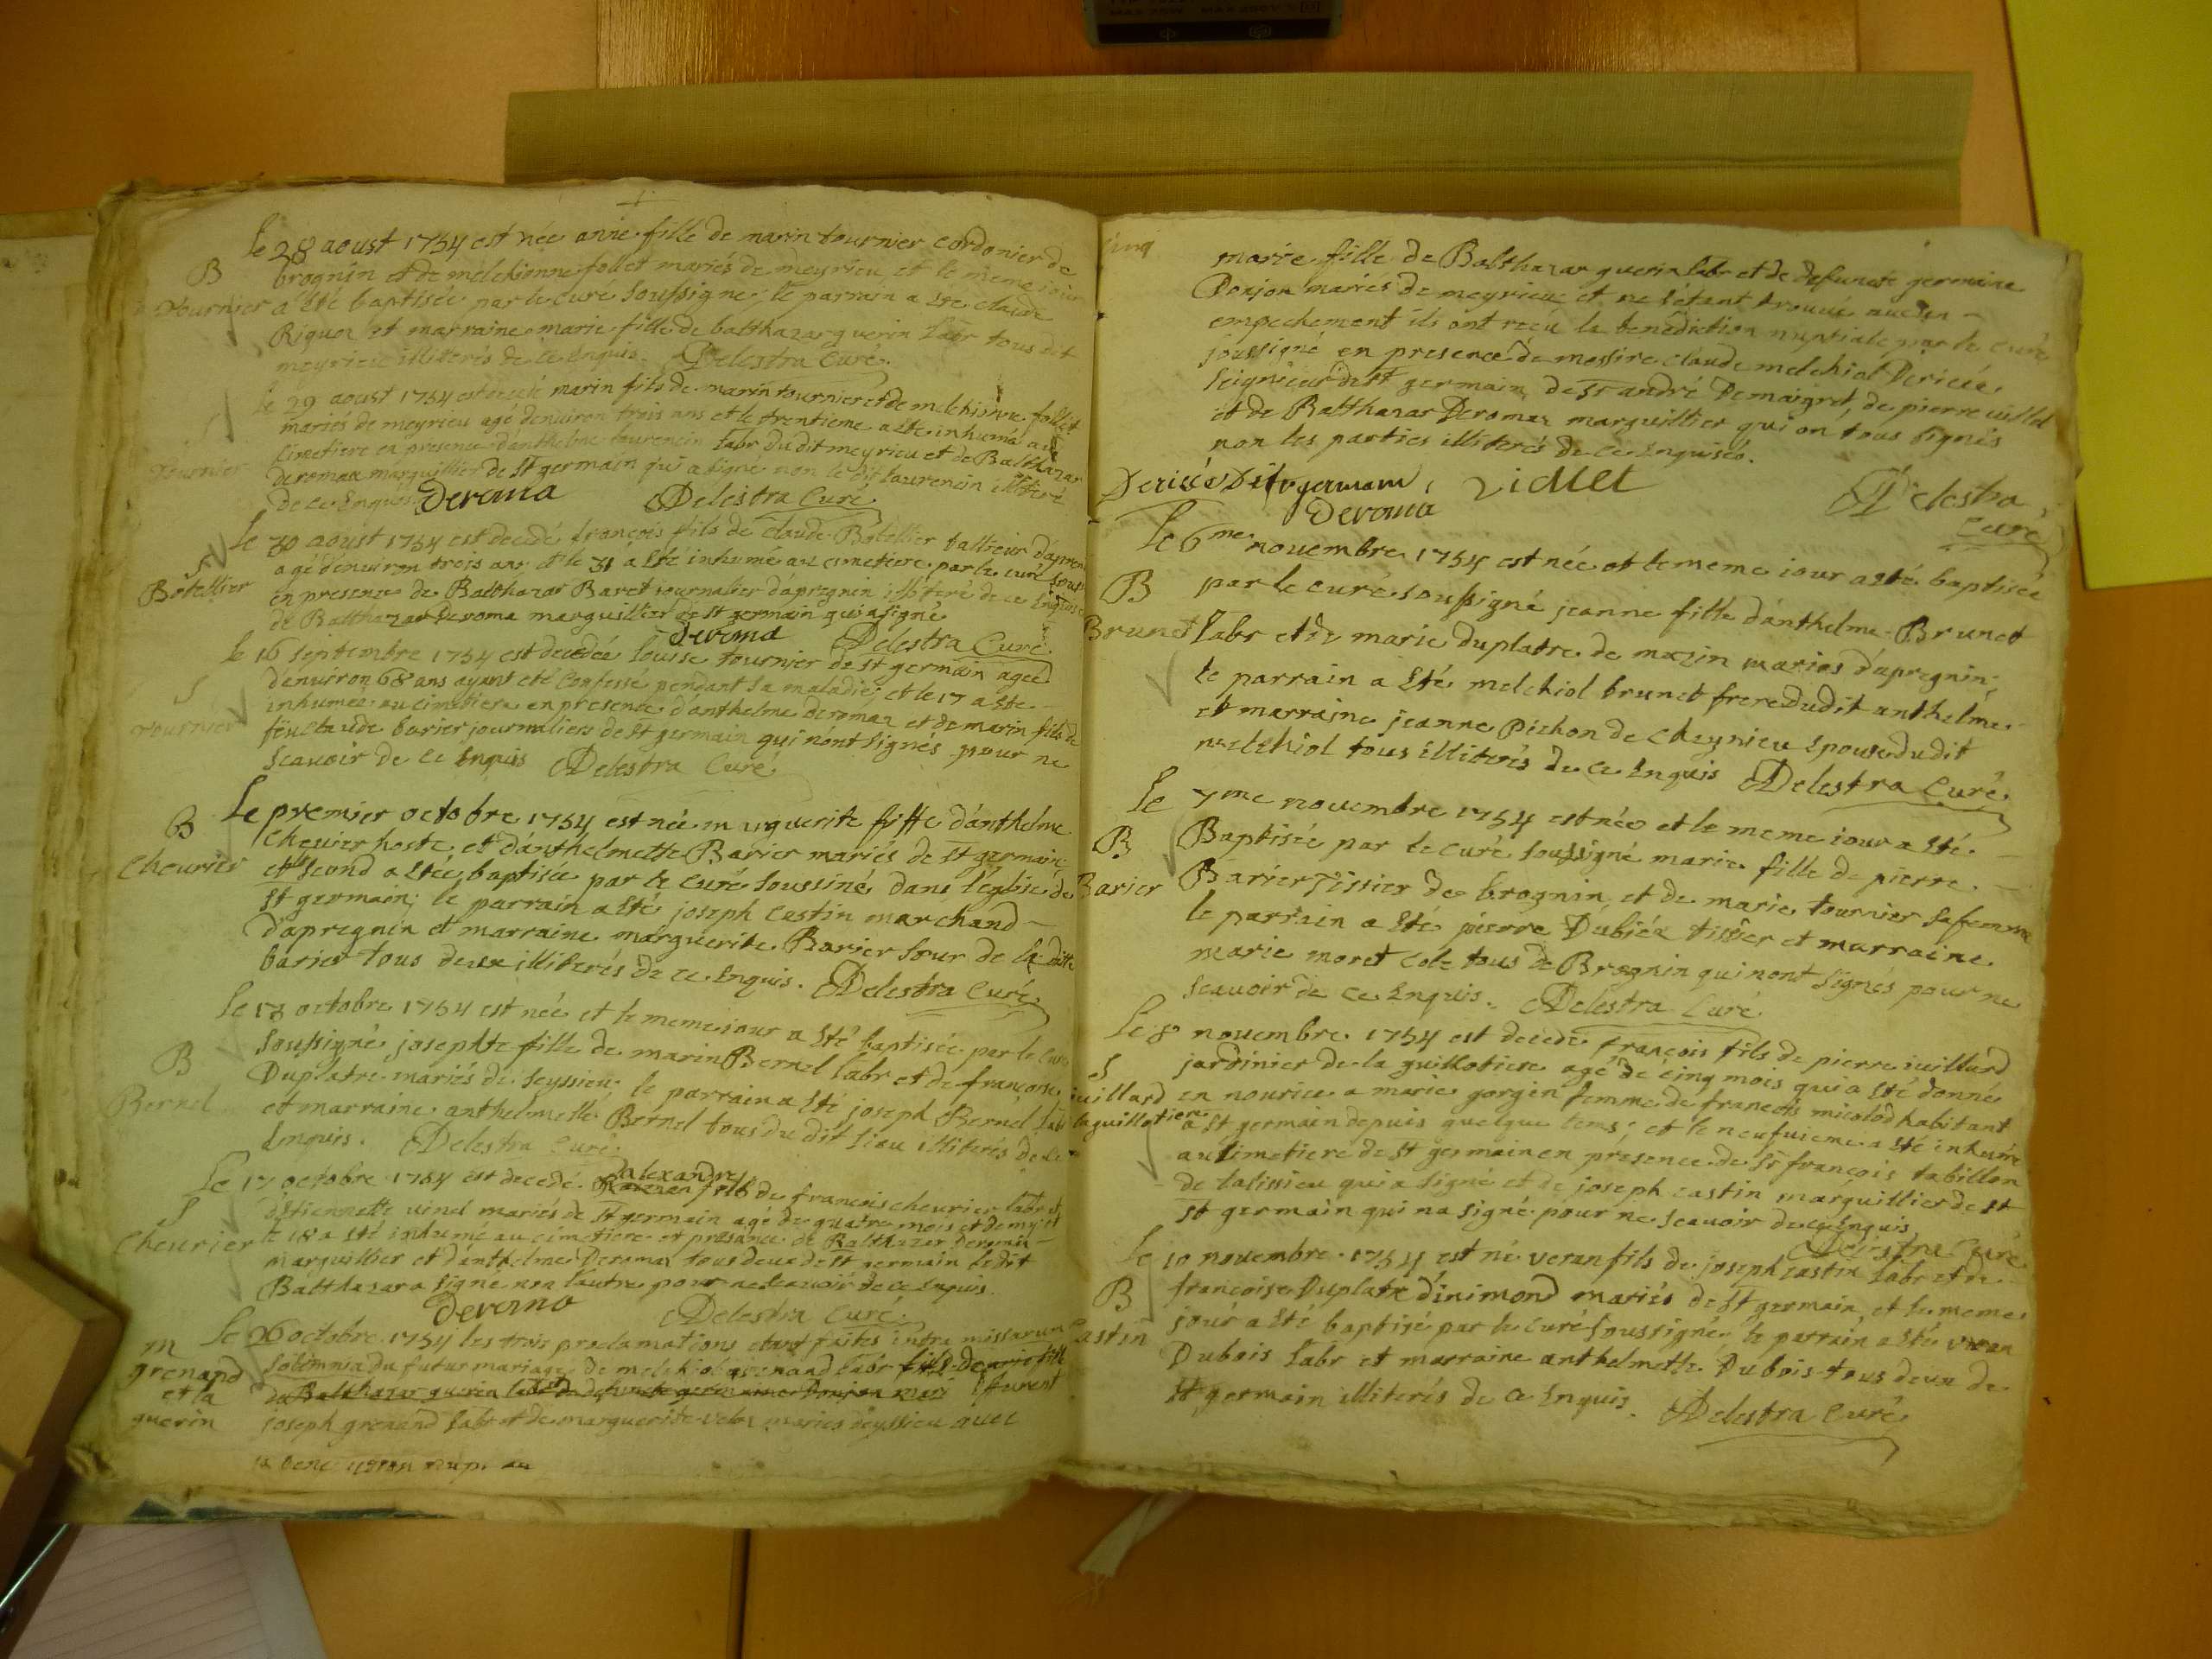 le 28 aoust 1754 est née anne fille de marin tournier cordonier de
B
brognin et de melchionne follet mariés de meyrieu et le meme jour
Tournier
a esté baptisée par le curé soussigné; le parrain a ete claude
Riquer et marraine marie fille de balthazar guerin labr tous dit
meyrieu illiterés de ce enquis. Delestra Curé.
S
Tournier
le 29 aoust 1754 est decedé marin fils de marin tournier et de melchionne follet
mariés de meyrieu agé denviron trois ans et le trentieme a ete inhumé au
cimetiere en presence danthelme laurencin labr dudit meyrieu et de Balthazar
deromax marguillier de st germain qui a signé non le dit laurencin illiteré
de ce enquis Deroma Delestra Curé
S
Botellier
Le 30 aoust 1754 est decedé françois fils de claude Botellier tallieur d'apregnin
agé denviron trois ans et le 31 a ete inhumé au cimetiere par le curé sous
en presence de Balthazar Baret journalier d'apregnin illiteré de ce enquis
de Balthazar Deroma marguillier de st germain qui a signé
Deroma Delestra Curé
S
Tournier
le 16 septembre 1754 est decedée louise tournier de st germain ageé
denviron 68 ans ayant eté confessé pendant sa maladie; et le 17 a ete
inhumée au cimetiere en presence danthelme deromaz et de marin fils de
feu claude barier journaliers de st germain qui n'ont signés pour ne
scavoir de ce enquis Delestra Curé
B
chevrier
Le premier octobre 1754 est née marguerite fille danthelme
chevrier hoste et danthelmette Barier mariés de st germain
et le second a eteé baptisée par le curé soussiné dans l'eglise de
st germain; le parrain a eté joseph castin marchand
dapregnin et marraine marguerite Barier sour de la ditte
barier tous deux illiterés de ce enquis. Delestra Curé
B
Bernel
le 13 octobre 1754 est née et le meme iour a eté baptisée par le curé
soussigné josephte fille de marin Bernel labr et de françoise
Duplatre mariés de seyssieu le parrain a eté joseph Bernel labr
et marraine anthelmette Bernel tous du dit lieu illiterés de ce
enquis. Delestra Curé
S
chevrier
Le 17 octobre 1754 est decedé alexandre fils de francois chevrier labr et
d'etiennette vinel mariés de st germain agé de quatre mois et demy et
le 18 a eté inhumé au cimetiere et presance de Balthazar Deroma
marguillier et danthelme Deromaz tous deux de st germain ledit
Balthazar a signé non lautre pour ne scavoir de ce enquis.
Deroma Delestra Curé
m
grenand
et la
guerin
le 26 octobre 1754 les trois proclamations etant faites intra missarum
solemnia du futur mariage de melchiol grenand labr fils de
du Balthazar guerin labr et de defuncte germaine Donjon
joseph grenand labr et de marguerite velat mariés deyssieu avec
marie fille de Balthazar guerin labr et de defuncte germaine
Donjon mariés de meyrieu et ne s'étant trouvé aucun
empechement ils ont reçu la benediction nuptiale par le curé
soussigné en presence de messire claude melchiol Dericée
seignieur de st germain, de sr andré Demaigret, de pierre vullet
et de Balthazar Deromaz marguillier qui on tous signés
non les parties illiterés de ce enquises.
Viallet
Deroma
Delestra
Curé
B
Brunet
Le 6me novembre 1754 est née et le meme iour a eté baptisée
par le curé soussigné jeanne fille danthelme Brunet
labr et de marie duplatre de mazin mariés dapregnin;
le parrain a eté melchiol brunet frere dudit anthelme
et marraine jeanne Pichon de cheynieu epouse dudit
melchiol tous illiterés de ce enquis Delestra Curé.
B
Barier
Le 7me novembre 1754 est née et le meme iour a eté
Baptisée par le curé soussigné marie fille de pierre
Barier Tissier de brognin et de marie tournier sa femme
le parrain a eté pierre Dubiéz tissier et marraine
marie moret cole tous de Brognin qui n'ont signés pour ne
scavoir de ce enquis. Delestra Curé
S
iuillard
laguillotiere
le 8 novembre 1754 est decedé françois fils de pierre iuillard
jardinier de la guillotiere agé de cinq mois qui a eté donné
en nourice a marie gorgin femme de françois micolod habitant
a st germain depuis quelque tems; et le neufvieme a eté inhumé
au cimetiere de st germain en présence de sr françois tabillon
de talissieu qui a signé et de joseph castin marguillier de st
st germain qui na signé pour ne scavoir de ce enquis
Delestra Curé
B
castin
le 10 novembre 1754 est né veran fils de joseph castin labr et de
françoise Duplatre dinimond mariés de st germain et le meme
jour a eté baptisé par le curé soussigné le parrain a eté veran
Dubois labr et marraine anthelmette Dubois tous deux de
st germain illiterés de ce enquis. Delestra Curé